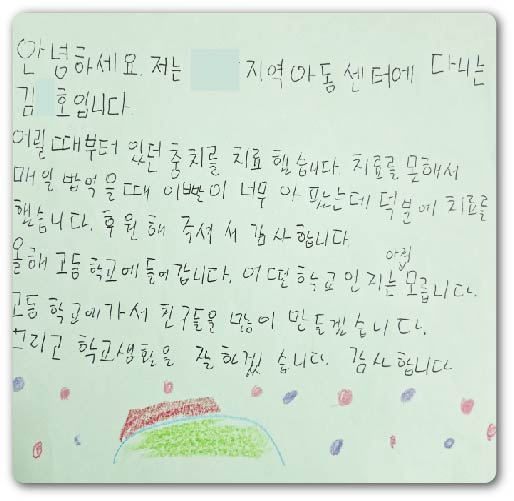 안녕하세요. 저는 지역아동센터에 다니는
김 호입니다.
어릴때부터 있던 충치를 치료 했습니다. 치료를 못해서
매일 밥먹을때 이빨이 너무 아팠는데 덕분에 치료를
했습니다. 후원해 주셔서 감사합니다
올해 고등학교에 들어갑니다. 어떤 학교인지는 아직 모릅니다.
고등학교에가서 친구들을 많이 만들겠습니다.
그리고 학교생활을 잘 하겠습니다. 감사합니다